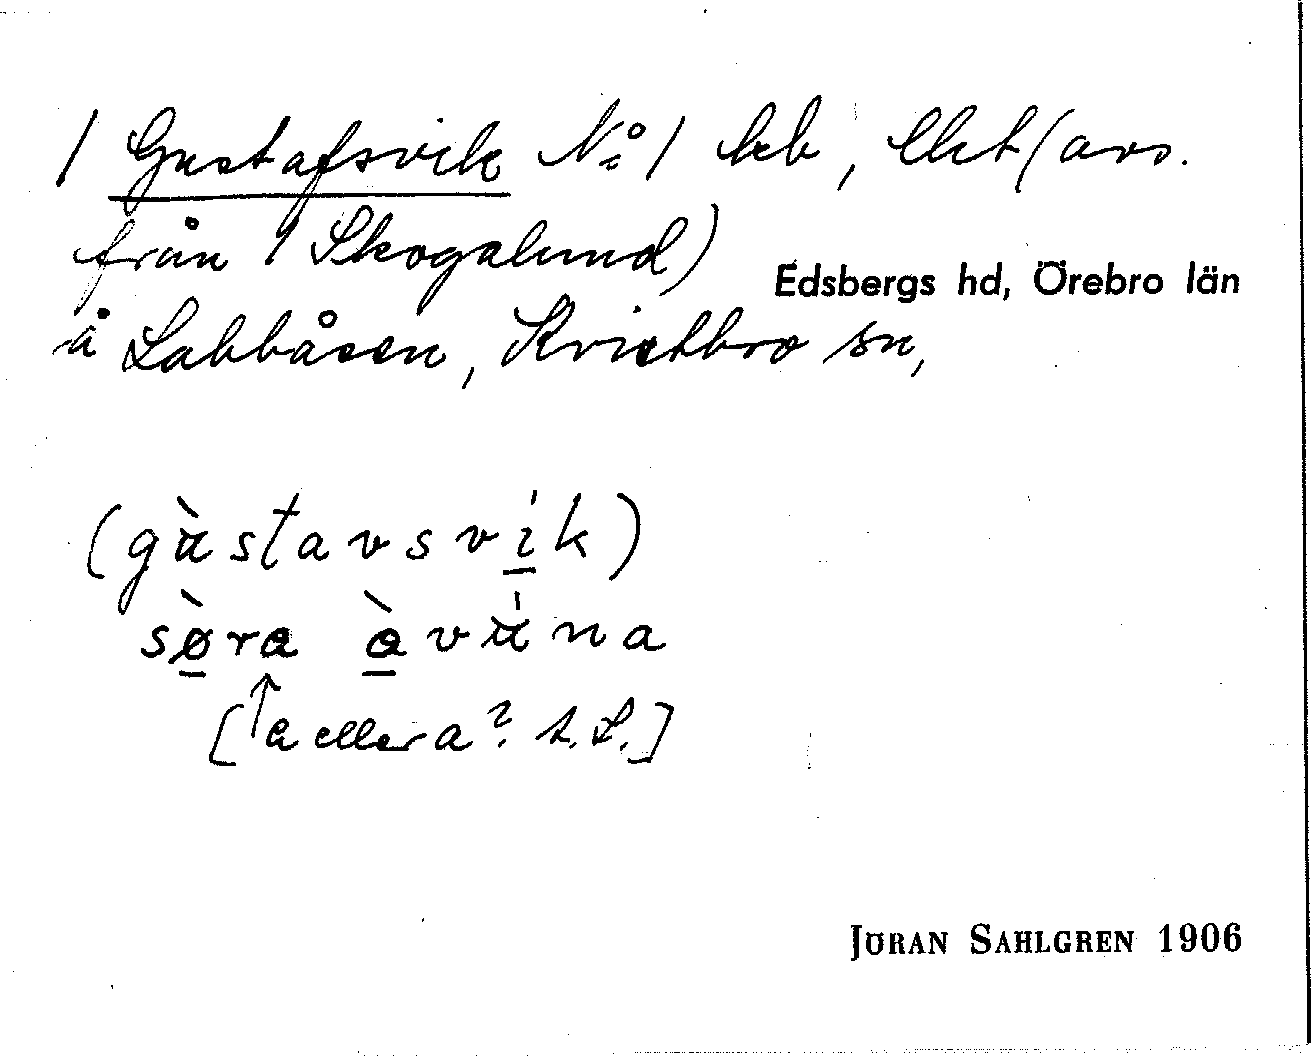 1 Gustafsvik No 1 hb, (avs.
från 1 Skogalund)
Edsbergs hd, Örebro län
å Labbåsen, Kvistbro sn,
(gùstavsvik)
søra àvùna
[↑a eller a? t.S.]
JÖRAN SAHLGREN 1906